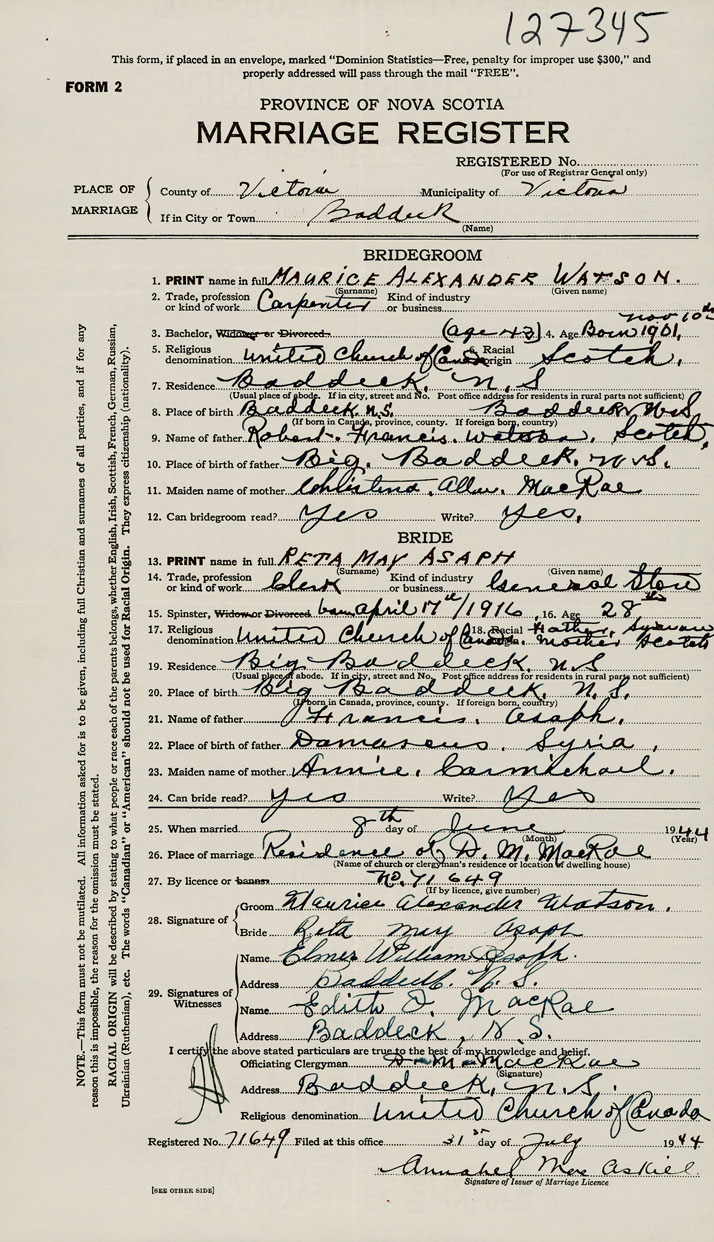 127345
This form, if placed in an envelope, marked "Dominion Statistics—Free, penalty for improper use $300," and
properly addressed will pass through the mail "FREE".
FORM 2
PROVINCE OF NOVA SCOTIA
MARRIAGE REGISTER
REGISTERED No.
(For use of Registrar General only)
PLACE OF MARRIAGE
County of Victoria Municipality of Victoria
If in City or Town Baddeck
(Name)
BRIDEGROOM
1. PRINT name in full MAURICE ALEXANDER WATSON.
(Surname) (Given name)
2. Trade, profession or kind of work Carpenter Kind of industry or business
3. Bachelor, Widower or Divorced (age 43) 4. Age Born Nov 10th 1901,
5. Religious denomination United Church of Can. Racial origin Scotch.
7. Residence Baddeck, N.S
(Usual place of abode. If in city, street and No. Post office address for residents in rural parts not sufficient)
8. Place of birth Baddeck N.S. Baddeck N.S
(If born in Canada, province, county. If foreign born, country)
9. Name of father Robert Francis Watson, Scotch,
10. Place of birth of father Big Baddeck, N.S.
11. Maiden name of mother Christina Allan MacRae
12. Can bridegroom read? Yes Write? Yes,
BRIDE
13. PRINT name in full RETA MAY ASAPH
(Surname) (Given name)
14. Trade, profession or kind of work Clerk Kind of industry or business General Store
15. Spinster, Widow or Divorced born April 17th/1916, 16. Age 28
17. Religious denomination United Church of Canada 18. Racial Father, Syrian Mother Scotch
19. Residence Big Baddeck, N.S
(Usual place of abode. If in city, street and No. Post office address for residents in rural parts not sufficient)
20. Place of birth Big Baddeck, N.S.
(If born in Canada, province, county. If foreign born, country)
21. Name of father Francis Asaph.
22. Place of birth of father Damascus, Syria,
23. Maiden name of mother Annie Carmichael.
24. Can bride read? Yes Write? Yes
25. When married 8th day of June 1944
(Month) (Year)
26. Place of marriage Residence of D. M. MacRae
(Name of church or clergyman's residence or location of dwelling house)
27. By licence or banns No. 71649
(If by licence, give number)
28. Signature of
Groom Maurice Alexander Watson.
Bride Reta May Asaph
29. Signatures of Witnesses
Name Elmer William Asaph.
Address Baddeck, N.S.
Name Edith D. MacRae
Address Baddeck, N.S.
I certify the above stated particulars are true to the best of my knowledge and belief.
Officiating Clergyman D. M. MacRae
(Signature)
Address Baddeck, N.S.
Religious denomination United Church of Canada
Registered No. 71649 Filed at this office 31st day of July 1944
Annabel MacAskill
Signature of Issuer of Marriage Licence
[SEE OTHER SIDE]
NOTE.—This form must not be mutilated. All information asked for is to be given, including full Christian and surnames of all parties, and if for any
reason this is impossible, the reason for the omission must be stated.
RACIAL ORIGIN will be described by stating to what people or race each of the parents belongs, whether English, Irish, Scottish, French, German, Russian,
Ukrainian (Ruthenian), etc. The words "Canadian" or "American" should not be used for Racial Origin. They express citizenship (nationality).